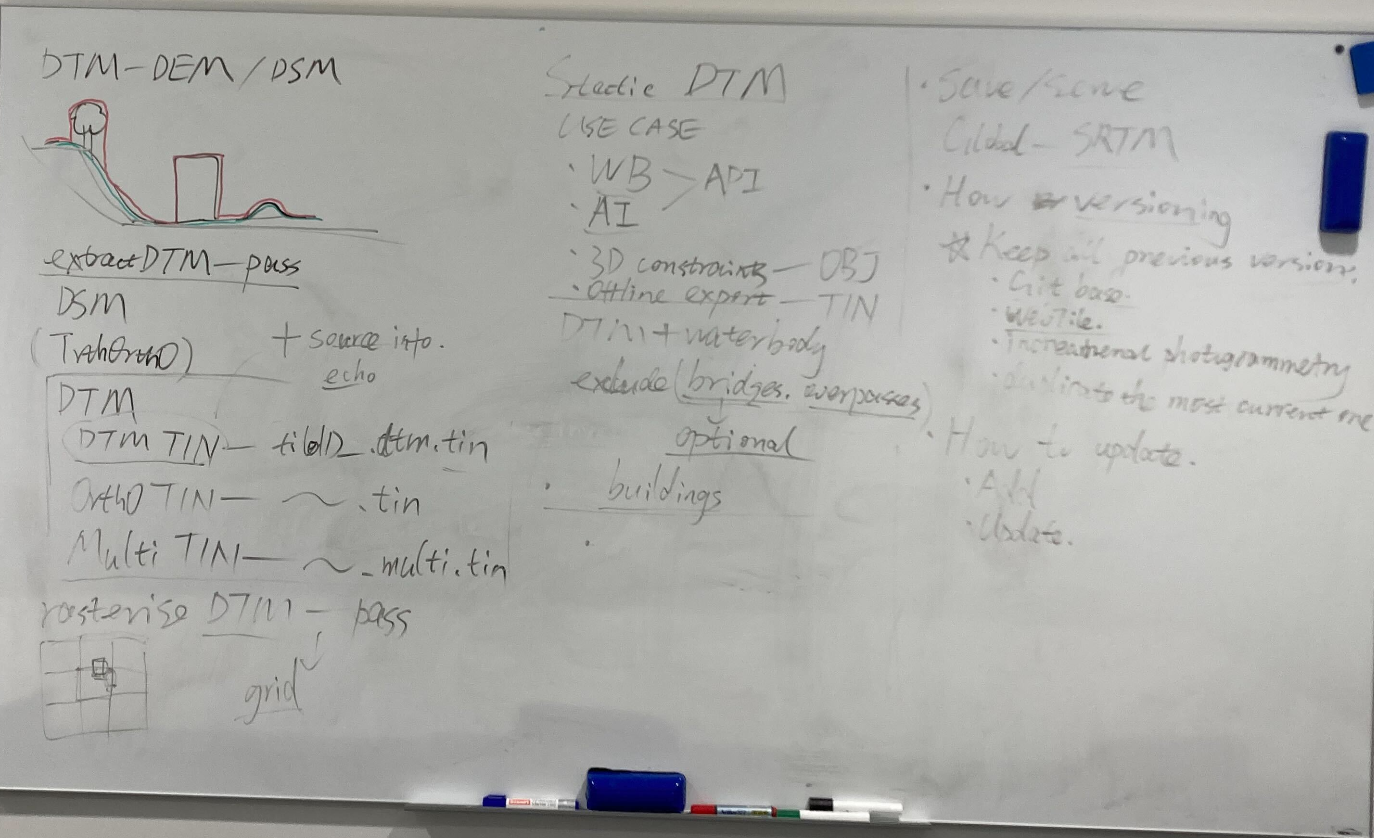 DTM-DEM/DSM
extractDTM-pass
DSM
+ source info.
echo
DTM
DTM TIN - tileID_.dtm.tin
Ortho TIN - ~.tin
Multi TIN - ~_multi.tin
rasterise DTM - pass
grid
DTM
USE CASE
· WB > API
· AI
· 3D constraints - OBJ
· Offline expert - TIN
DTM + waterbody
exclude (bridges. overpasses)
optional
· buildings
· Save/Serve
Global - SRTM
· How versioning
☆ Keep all previous version.
· Git base.
· photogrammetry
· to the most current one
· How to update.
· Add
· Update.